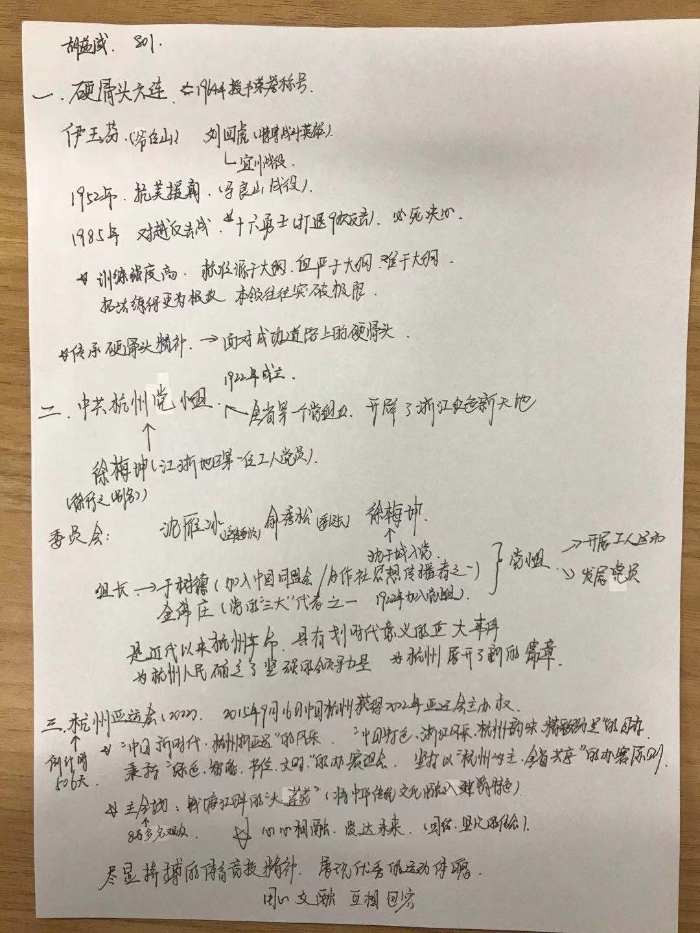 801.
一. 硬骨头六连. ← 1964年授予荣誉称号.
伊玉芬. 刘四虎
宜川战役
1952年. 抗美援朝.
1985年 对越反击战. 十六勇士(打退9次反击).
训练强度高. 标准源于大纲. 但严于大纲. 难于大纲.
本领往往突破极限.
传承硬骨头精神. → 面对成功道路上的硬骨头.
1922年成立.
二. 中共杭州党小组. ← 全省第一个党组织. 开辟了浙江红色新天地
徐梅坤(江浙地区第一位工人党员).
(徐行之(别名))
委员会: 沈雁冰 俞秀松 徐梅坤.
组长 → 于树德(加入中国同盟会/合作社思想传播者之一) 党小组 → 开展工人运动
金佛庄(党的"三大"代表之一 1922年加入党组). → 发展党员
是近代以来杭州 具有划时代意义的 大事件
为杭州人民 了坚强的领导力量 为杭州展开了新的篇章.
三. 杭州亚运会(2022). 2015年9月16日中国杭州获得2022年亚运会主办权.
倒计时
506天
"中国新时代·杭州新亚运"的 "中国特色、浙江风采、杭州韵味、精彩 "的目标.
秉持"绿色、智能、节俭、文明"的办赛理念. 坚持以"杭州为主,全省共享"的办赛原则.
主会场: 钱塘江畔的"大莲花"(将中华传统文化融入建筑特色)
8万多名观众. 心心相融,爱达未来.
尽显拼搏的体育竞技精神. 展现优秀的运动
用心交融 互相